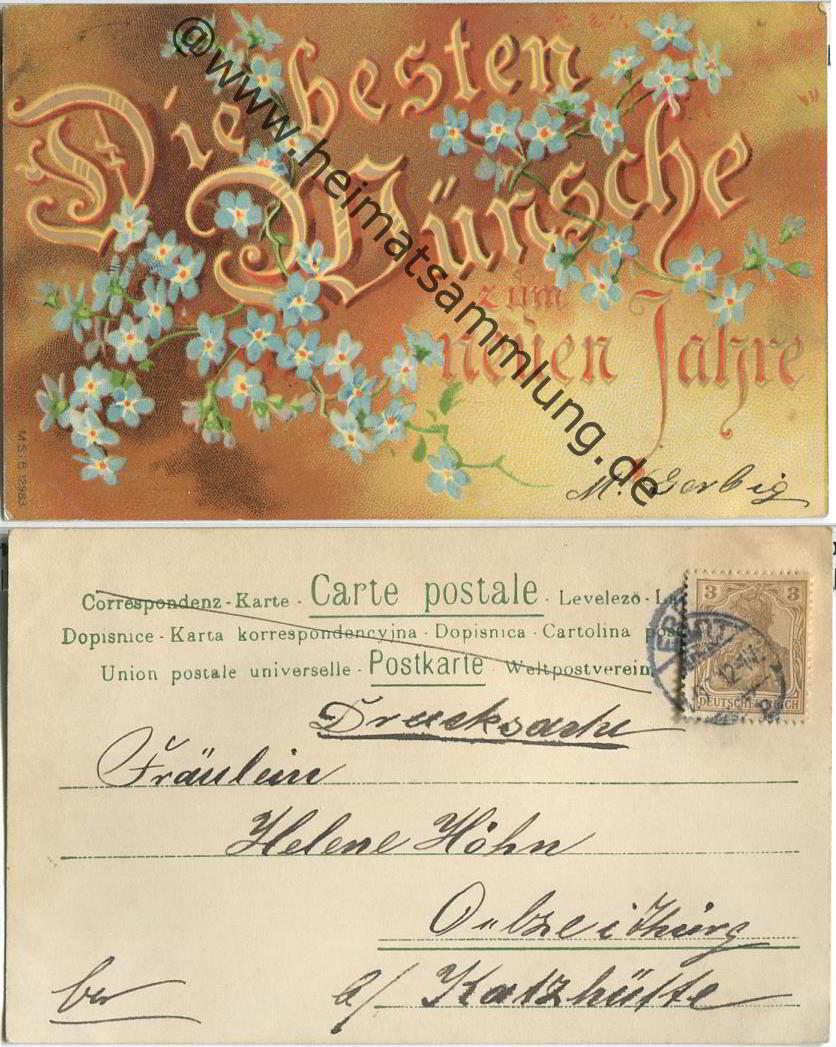 Die besten
Wünsche
zum
neuen Jahre
@www.heimatsammlung.de
M.S.i.B. 12983
M. Gerbig
Correspondenz-Karte - Carte postale - Levelező-La
Dopisnice - Karta korrespondencyjna - Dopisnica - Cartolina post
Union postale universelle - Postkarte - Weltpostverein
3 3
DEUTSCHES REICH
ERFURT
Drucksache
Fräulein
Helene Höhn
Oelze i Thürg
a/ Katzhütte